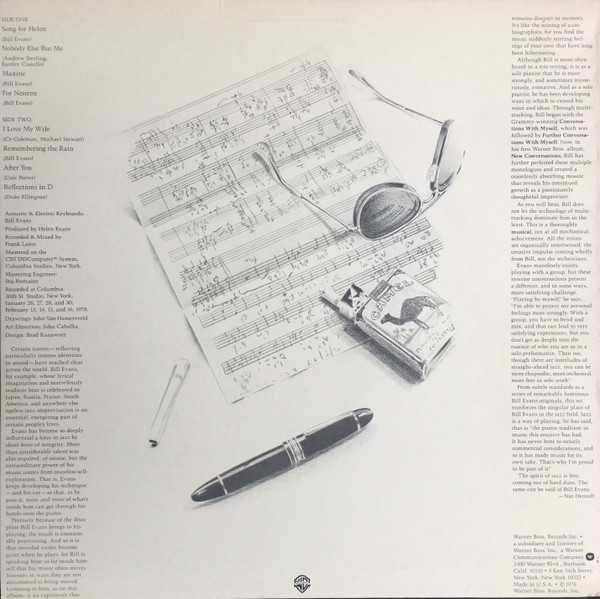 SIDE ONE
Song for Helen
(Bill Evans)
Nobody Else But Me
(Andrew Sterling,
Bartley Costello)
Maxine
(Bill Evans)
For Nenette
(Bill Evans)
SIDE TWO
I Love My Wife
(Cy Coleman, Michael Stewart)
Remembering the Rain
(Bill Evans)
After You
(Cole Porter)
Reflections in D
(Duke Ellington)
Acoustic & Electric Keyboards:
Bill Evans
Produced by Helen Keane
Recorded & Mixed by
Frank Laico
Mastered on the
CBS DISComputer™ System,
Columbia Studios, New York.
Mastering Engineer:
Stu Romaine
Recorded at Columbia
30th St. Studio, New York.
January 26, 27, 28, and 30;
February 13, 14, 15, and 16, 1978.
Drawings: John Van Hamersveld
Art Direction: John Cabalka
Design: Brad Kanawyer
Certain names—reflecting
particularly intense identities
in sound—have reached clear
across the world. Bill Evans,
for example, whose lyrical
imagination and marvelously
resilient beat is celebrated in
Japan, Russia, France, South
America, and anywhere else
ageless jazz improvisation is an
essential, energizing part of
certain people's lives.
Evans has become so deeply
influential a force in jazz by
sheer force of integrity. More
than considerable talent was
also required, of course, but the
extraordinary power of his
music comes from ceaseless self-
exploration. That is, Evans
keeps developing his technique
—and his ear—so that, as he
puts it, more and more of what's
inside him can get through his
hands onto the piano.
Precisely because of the disci-
pline Bill Evans brings to his
playing, the result is emotion-
ally penetrating. And so it is
that crowded rooms become
quiet when he plays, for Bill is
speaking from so far inside him-
self that his music often moves
listeners in ways they are not
accustomed to being moved.
Listening to him, as on this
album, is an experience that
CAMEL
remains deepest in memory.
It's like the joining of auto-
biographies, for you find the
music suddenly stirring feel-
ings of your own that have long
been hibernating.
Although Bill is most often
heard in a trio setting, it is as a
solo pianist that he is most
strongly, and sometimes myste-
riously, evocative. And as a solo
pianist, he has been developing
ways in which to extend his
voice and ideas. Through multi-
tracking, Bill began with the
Grammy-winning Conversa-
tions With Myself, which was
followed by Further Conversa-
tions With Myself. Now, in
his first Warner Bros. album,
New Conversations, Bill has
further perfected these multiple
monologues and created a
ceaselessly absorbing mosaic
that reveals his continued
growth as a passionately
thoughtful improviser.
As you will hear, Bill does
not let the technology of multi-
tracking dominate him in the
least. This is a thoroughly
musical, not at all mechanical,
achievement. All the voices
are organically intertwined, the
creative impulse coming wholly
from Bill, not the technicians.
Evans manifestly enjoys
playing with a group, but these
intense conversations present
a different, and in some ways,
more satisfying challenge.
"Playing by myself," he says,
"I'm able to project my personal
feelings more strongly. With a
group, you have to bend and
mix, and that can lead to very
satisfying experiences, but you
don't get as deeply into the
essence of who you are as in a
solo performance. Then too,
though there are interludes of
straight-ahead jazz, you can be
more rhapsodic, more orchestral,
more free in solo work."
From subtle standards to a
series of remarkably luminous
Bill Evans originals, this set
reinforces the singular place of
Bill Evans in the jazz field. Jazz
is a way of playing, he has said,
that is "the purest tradition in
music this country has had.
It has never bent to strictly
commercial considerations, and
so it has made music for its
own sake. That's why I'm proud
to be part of it."
The spirit of jazz is free,
coming out of hard duty. The
same can be said of Bill Evans.
—Nat Hentoff
Warner Bros. Records Inc. •
a subsidiary and licensee of
Warner Bros. Inc., a Warner
Communications Company
3300 Warner Blvd., Burbank,
Calif. 91510 • 3 East 54th Street,
New York, New York 10022 •
Made in U.S.A. • © 1978
Warner Bros. Records, Inc.